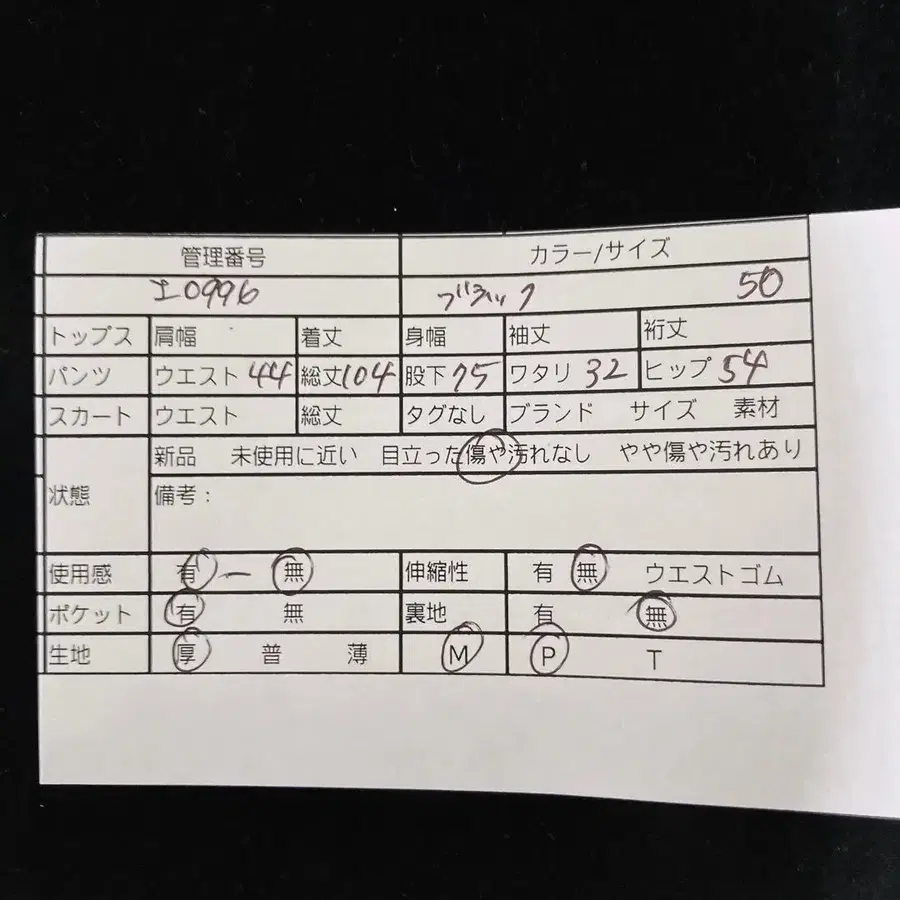 管理番号 カラー/サイズ
エ0996 ブラック 50
トップス 肩幅 着丈 身幅 袖丈 裄丈
パンツ ウエスト 44 総丈 104 股下 75 ワタリ 32 ヒップ 54
スカート ウエスト 総丈 タグなし ブランド サイズ 素材
新品 未使用に近い 目立った傷や汚れなし やや傷や汚れあり
状態 備考:
使用感 有 — 無 伸縮性 有 無 ウエストゴム
ポケット 有 無 裏地 有 無
生地 厚 普 薄 M P T